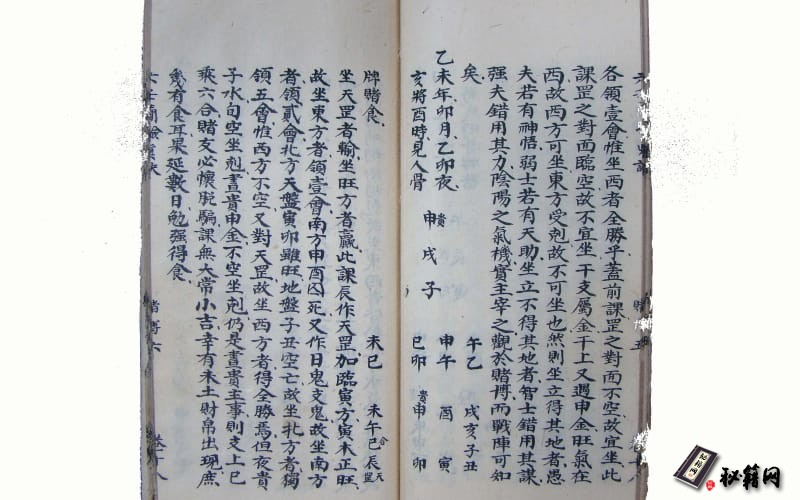 各領壹會惟坐西者全勝乎蓋前課罡之對面不空故宜坐此
課罡之對面臨空故不宜坐干支屬金干上又遇申金旺氣在
西故西方可坐東方受剋故不可坐也然則坐立得其地者愚
夫若有神悟弱士若有天助坐立不得其地者智士錯用其謀
强夫錯用其力陰陽之氣機實主宰之觀於賭博而戰陣可知
矣
午乙 戌亥子丑
乙未年卯月乙卯夜
貴
申戌子 申午 酉 寅
亥將酉時見人骨
巳卯 貴申 卯
牌賭食 未巳 未午巳合辰罡天
坐天罡者輸坐旺方者贏此課辰作天罡加臨寅方寅木正旺
故坐東方者領壹會南方申酉囚死又作日鬼支鬼故坐南方
者領貳會北方天盤寅卯雖旺地盤子丑空亡故坐北方者獨
領五會惟西方不空又對天罡故坐西方者得全勝焉但夜貴
子水旬空坐剋晝貴申金不空坐剋仍是晝貴主事則支上巳
乘六合賭友必懷脫騙課無大常小吉幸有未土財帛出現庶
幾有食耳果延數日勉强得食
秘籍网